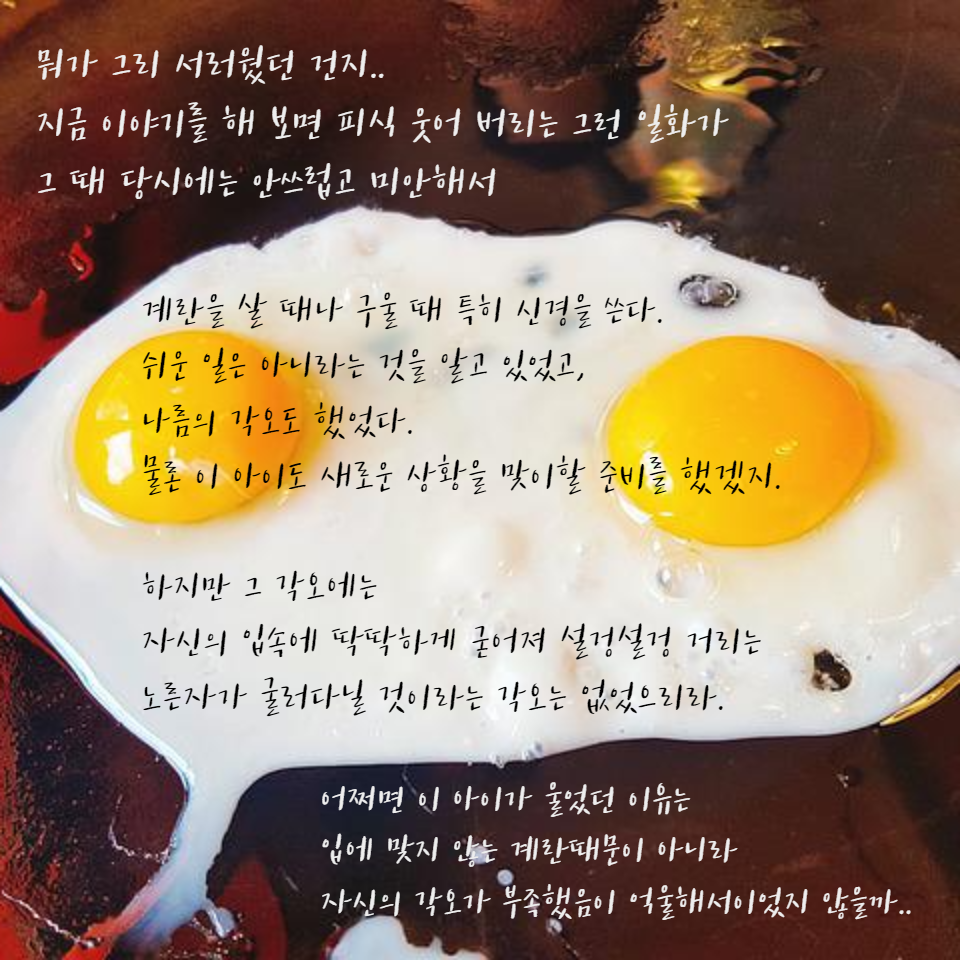 뭐가 그리 서러웠던 건지..
지금 이야기를 해 보면 피식 웃어 버리는 그런 일화가
그 때 당시에는 안쓰럽고 미안해서
계란을 살 때나 구울 때 특히 신경을 쓴다.
쉬운 일은 아니라는 것을 알고 있었고,
나름의 각오도 했었다.
물론 이 아이도 새로운 상황을 맞이할 준비를 했겠지.
하지만 그 각오에는
자신의 입속에 딱딱하게 굳어져 설겅설겅 거리는
노른자가 굴러다닐 것이라는 각오는 없었으리라.
어쩌면 이 아이가 울었던 이유는
입에 맞지 않는 계란때문이 아니라
자신의 각오가 부족했음이 억울해서이었지 않을까..